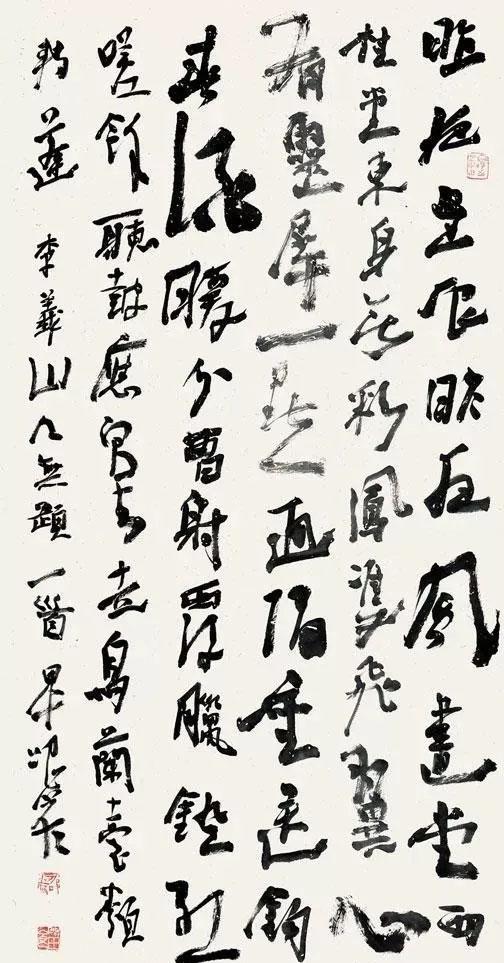 昨夜星辰昨夜風畫堂西
桂堂東身無彩鳳雙飛翼心
有靈犀一點通隔座送鉤
春酒暖分曹射覆臘鐙紅
嗟餘聽鼓應官去走馬蘭臺類
轉蓬 李義山 無題一首